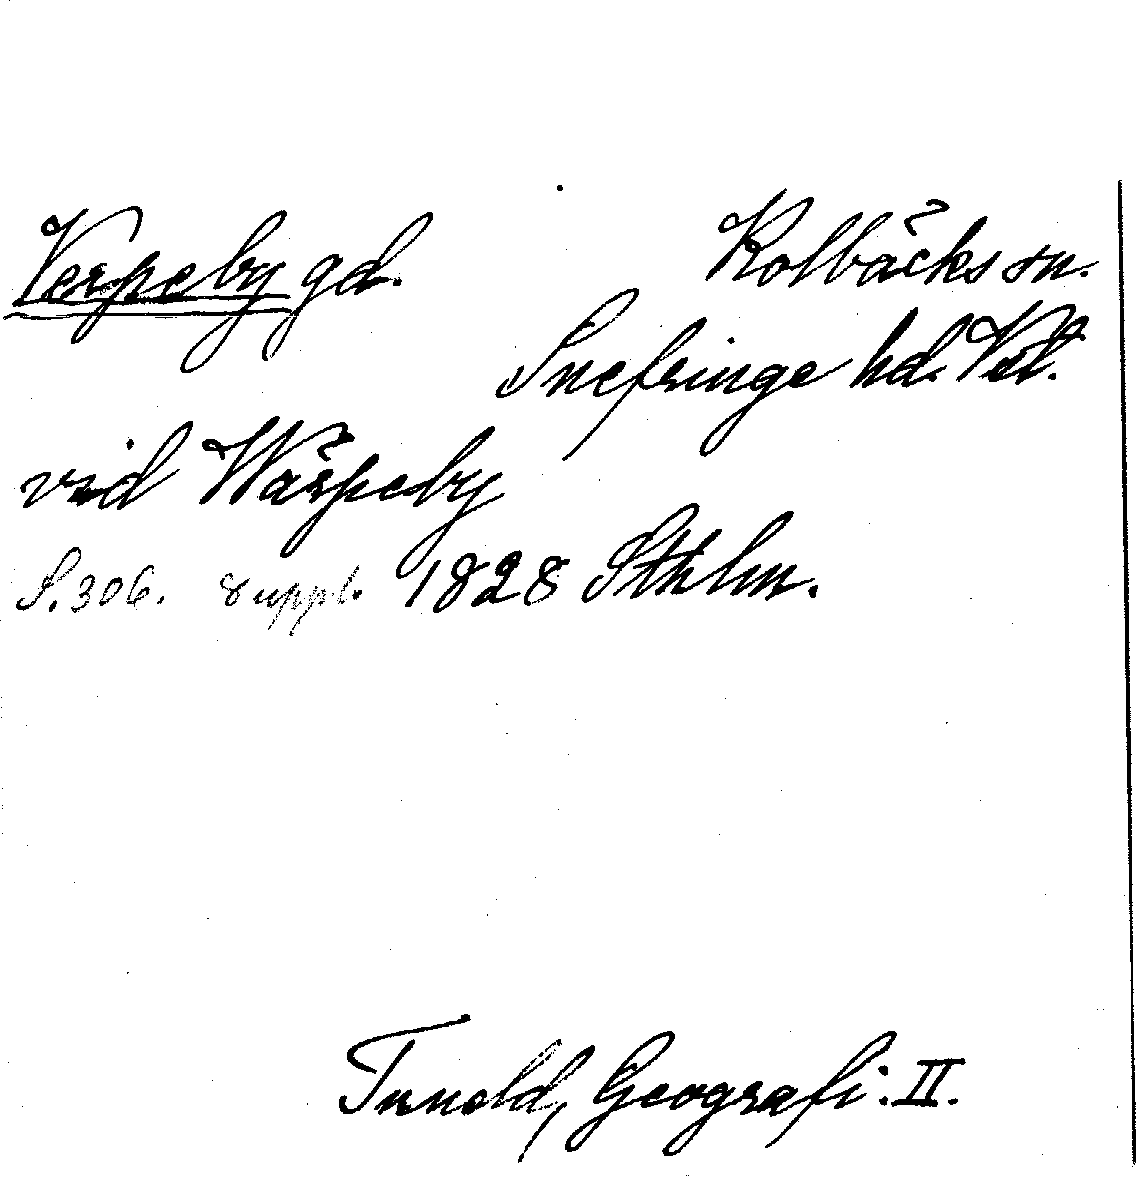 Verpeby gd. Kolbäcks sn.
Snefringe hd. Vstl.
vid Wärpeby
S. 306. suppl. 1828 Sthlm.
Tuneld, Geografi. II.